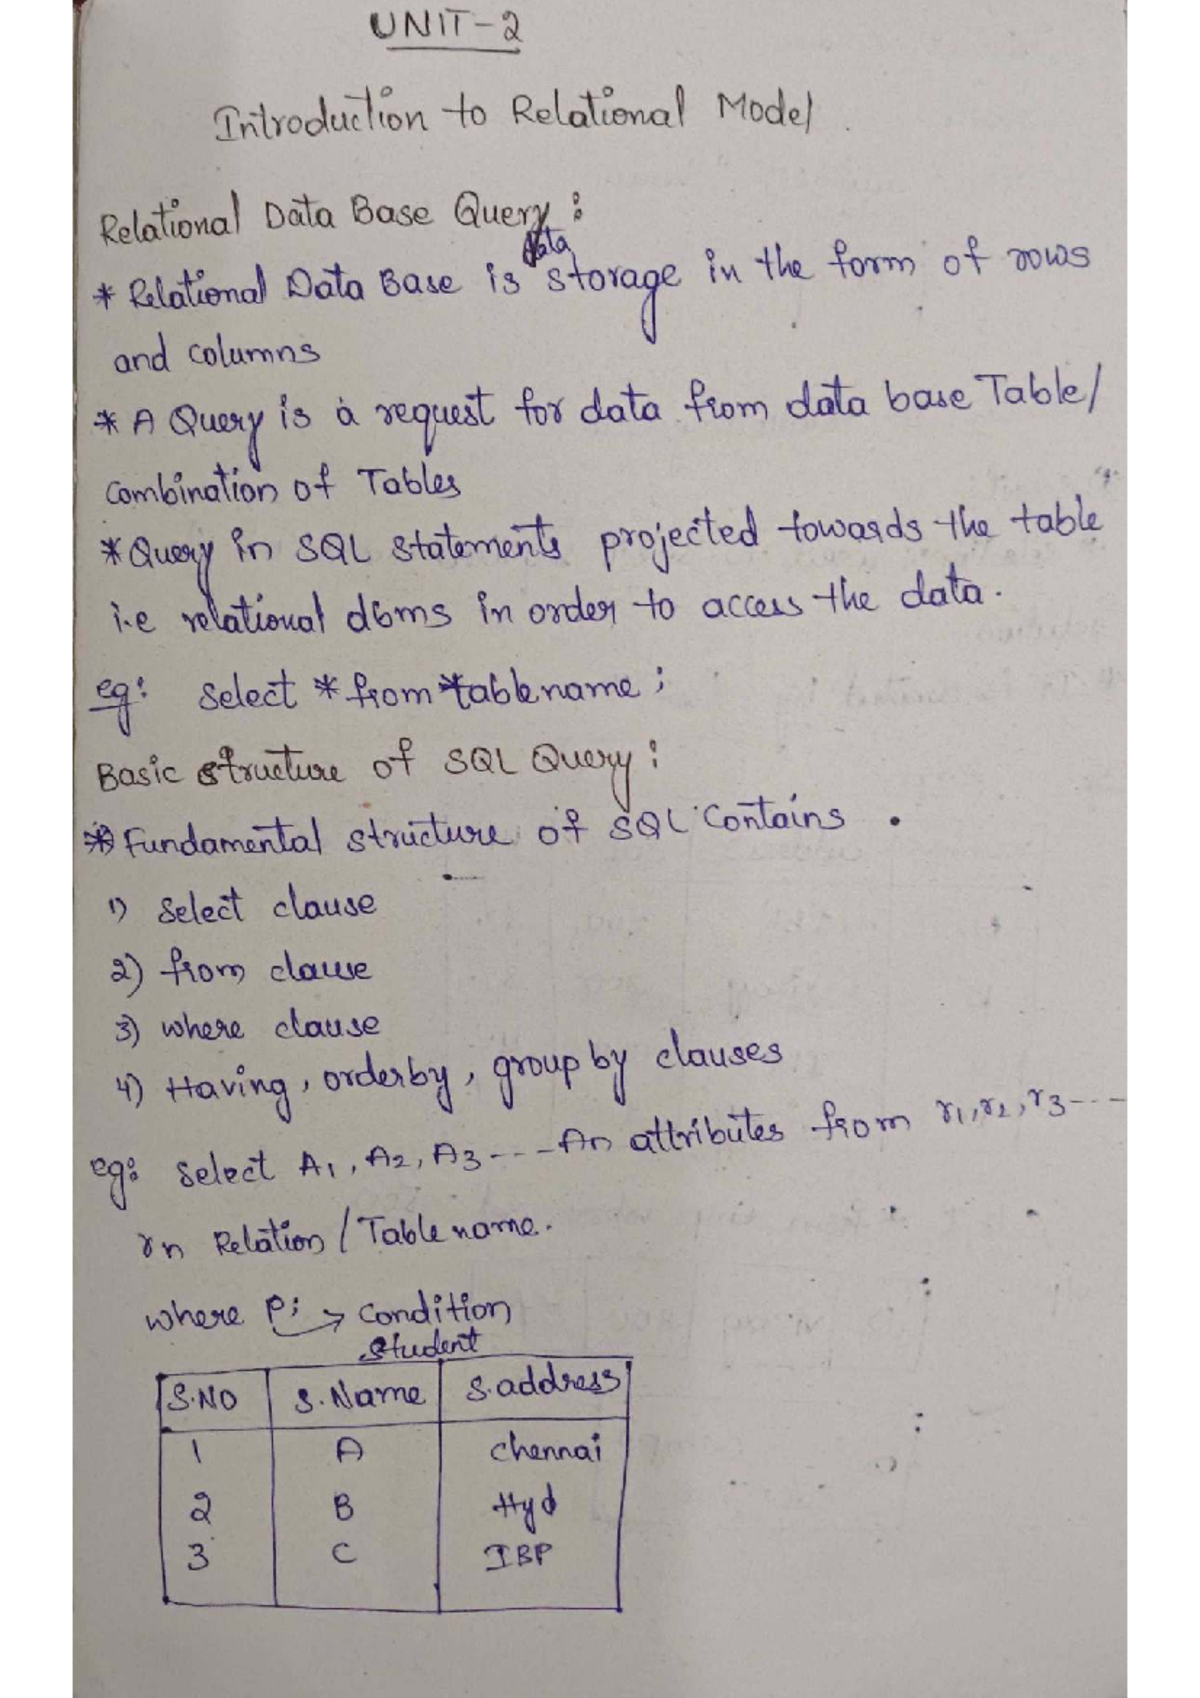 UNIT-2
Introduction to Relational Model.
Relational Data Base Query:
* Relational Data Base is data storage in the form of rows
and columns
* A Query is a request for data from data base Table/
combination of Tables
* Query in SQL statements projected towards the table
i.e relational dbms in order to access the data.
eg: Select * from *table name;
Basic structure of SQL Query:
* Fundamental structure of SQL Contains .
1) Select clause
2) from clause
3) where clause
4) Having, orderby, group by clauses
eg: Select A1, A2, A3 --- An attributes from r1, r2, r3 ---
rn Relation / Table name.
where P; → Condition
Student
S.NO S.Name S.address
1 A chennai
2 B Hyd
3 C IBP